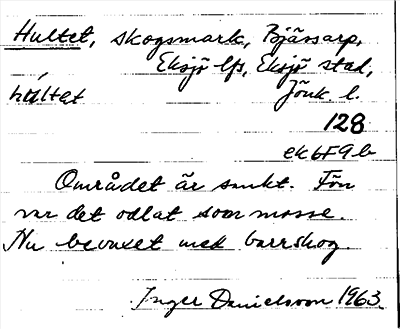 Hultet, skogsmark, Bjässarp,
Eksjö lfs, Eksjö stad,
húltet Jönk. l.
128
ek 6F9b
Området är sankt. Förr
var det odlat som mosse.
Nu bevuxet med barrskog.
Inger Danielsson 1963